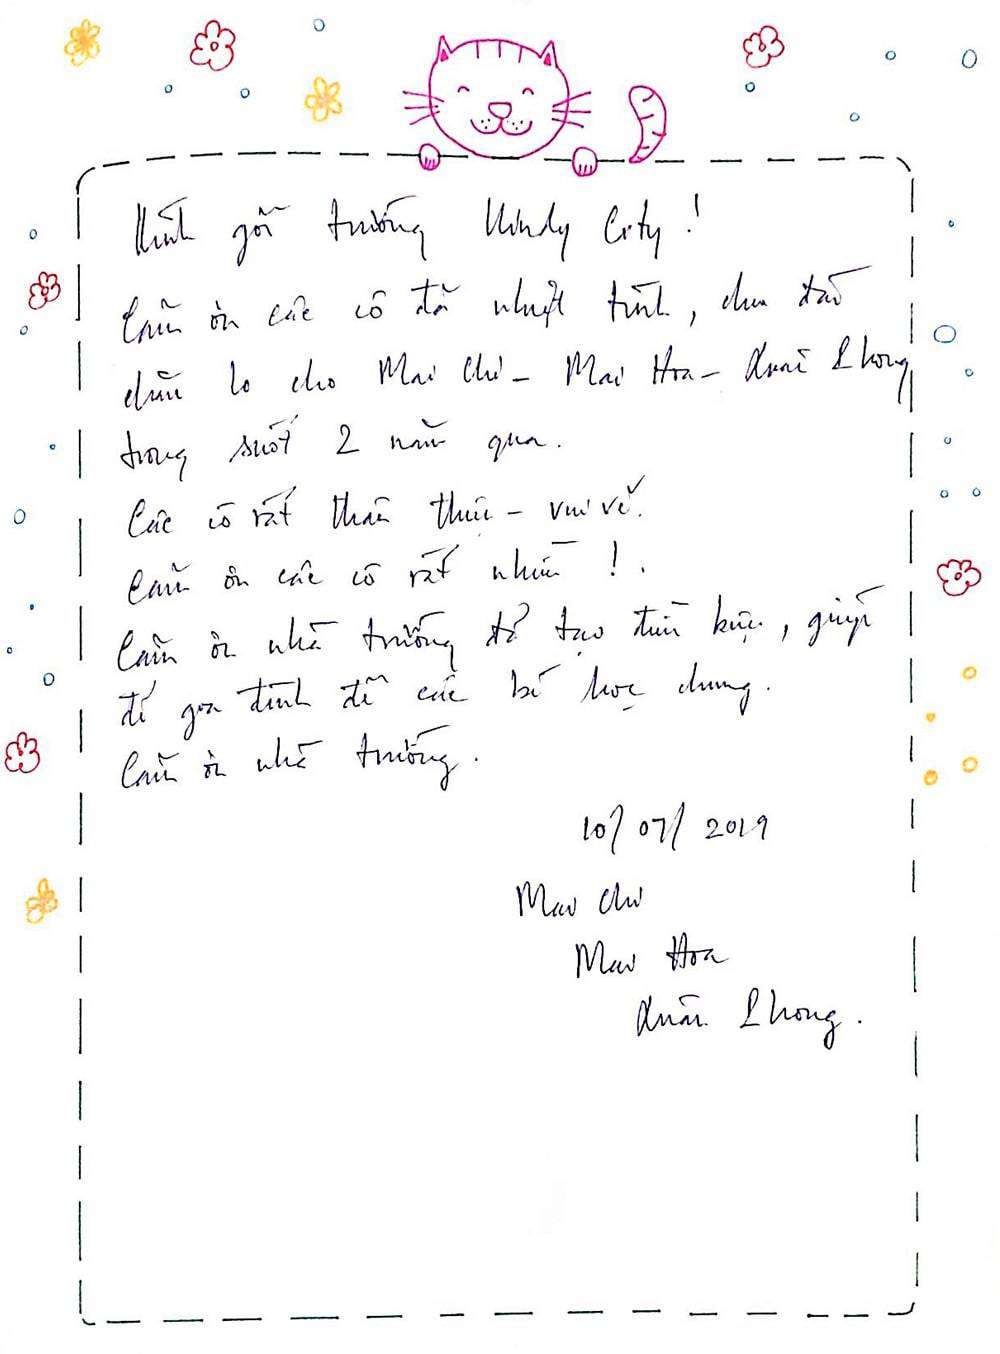 Kính gửi trường Windy City!
Cảm ơn các cô đã nhiệt tình, chu đáo
chăm lo cho Mai Chi - Mai Hoa - Xuân Phong
trong suốt 2 năm qua.
Các cô rất thân thiện - vui vẻ.
Cảm ơn các cô rất nhiều!.
Cảm ơn nhà trường đã tạo điều kiện, giúp
đỡ gia đình để các bé học chung.
Cảm ơn nhà trường.
10/07/2019
Mai Chi
Mai Hoa
Xuân Phong.